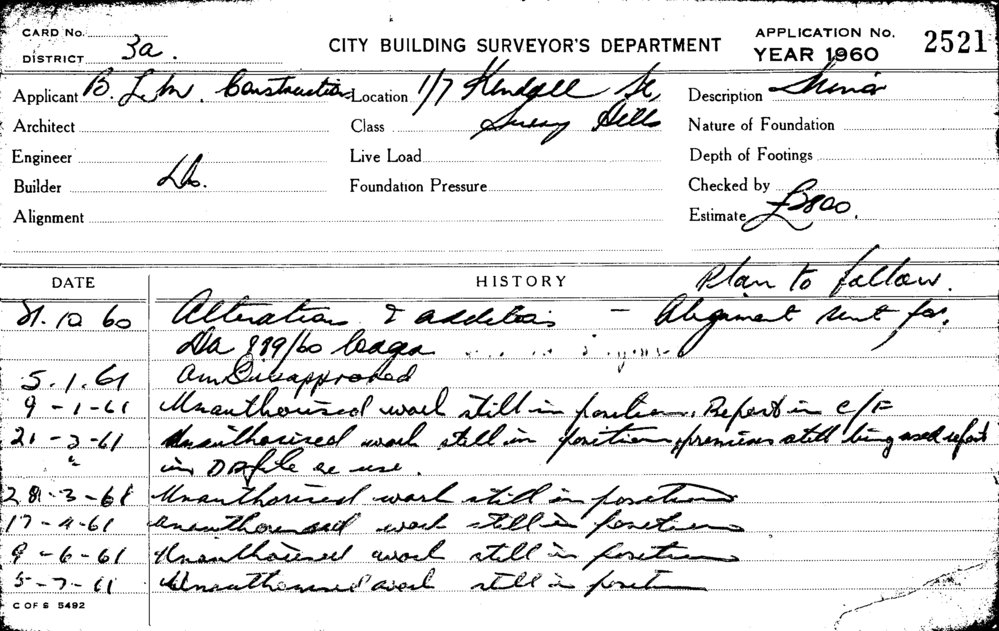 CARD No.
DISTRICT 3a.
CITY BUILDING SURVEYOR'S DEPARTMENT
APPLICATION No. 2521
YEAR 1960
Applicant B. L. M. Constructions Location 1/7 Kendall St, Description Minor
Architect Class Surry Hills Nature of Foundation
Engineer Live Load Depth of Footings
Builder Foundation Pressure Checked by
Alignment Estimate £3800.
DATE HISTORY Plan to follow.
31.10.60 Alterations & additions - Alignment sent for.
Da 889/60
5.1.61 Disapproved
9-1-61 Unauthorised work still in position. Report in C/F
21-2-61 Unauthorised work still in position, premises still being used report
in DA file re use.
28-3-61 Unauthorised work still in position
17-4-61 Unauthorised work still in position
9-6-61 Unauthorised work still in position
5-7-61 Unauthorised work still in position
C OF S 5492